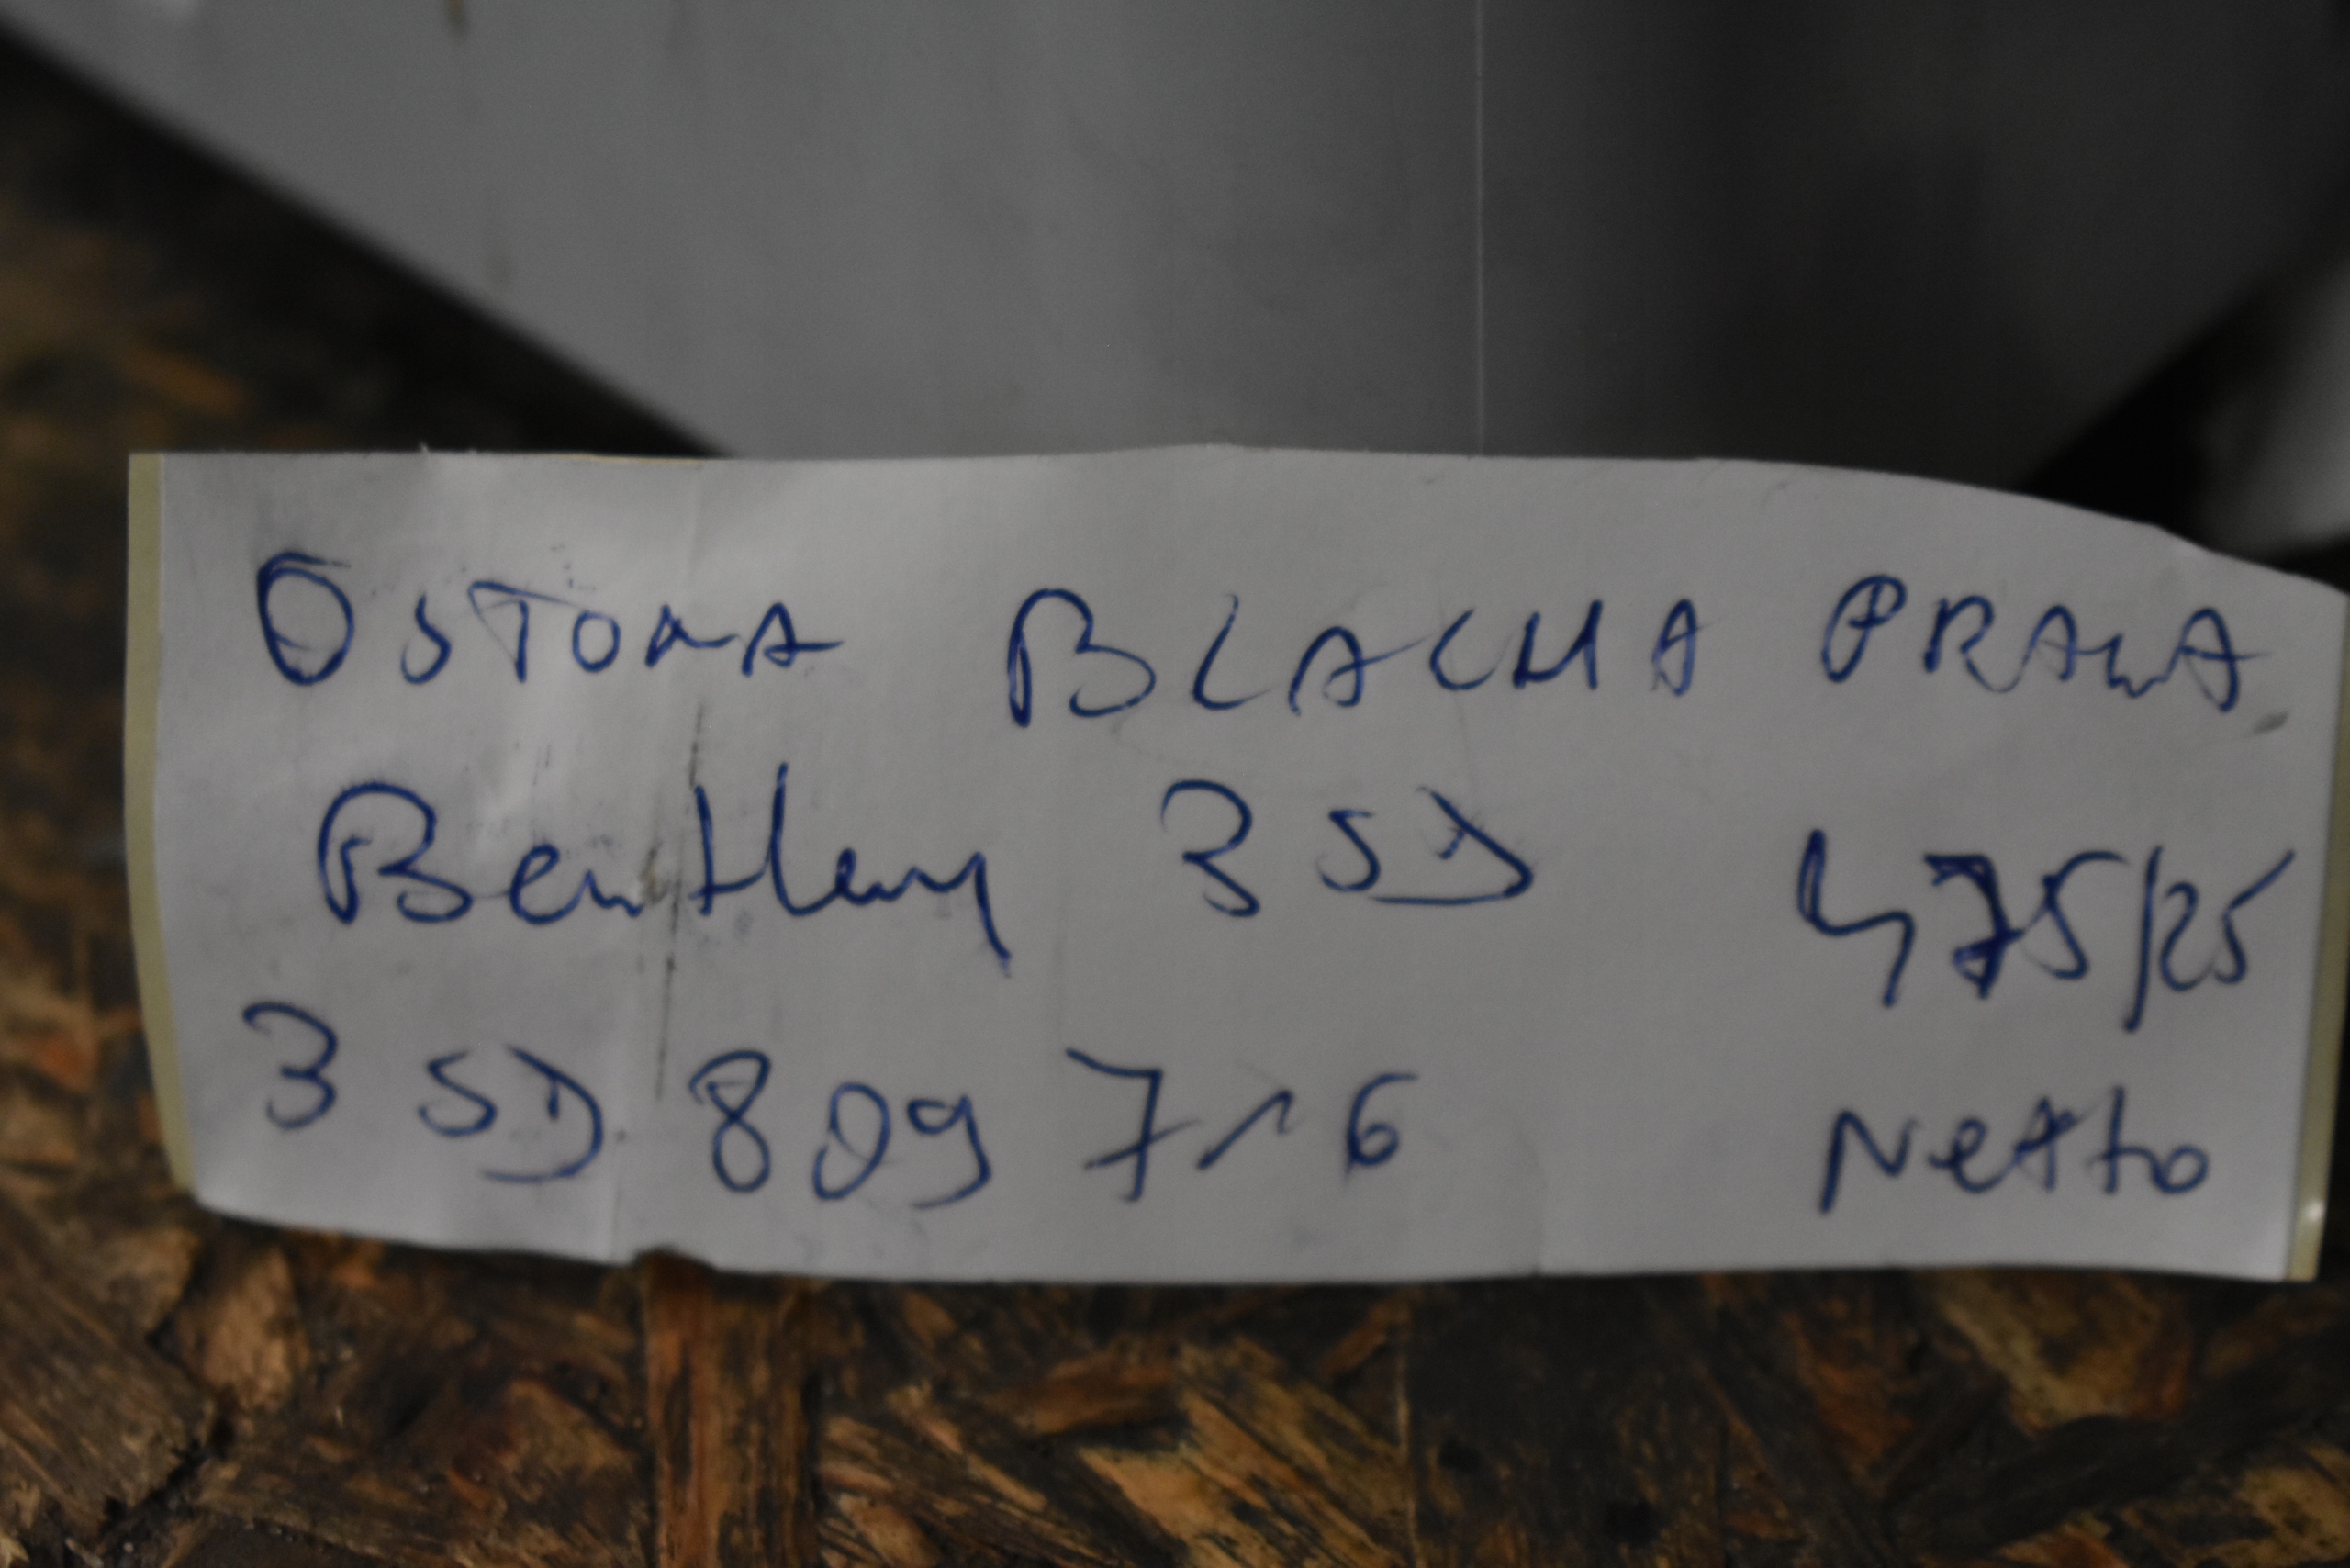 OSTONA BLACHA PRAWA
Bentley 3SD 475/25
3SD 809 716 Netto